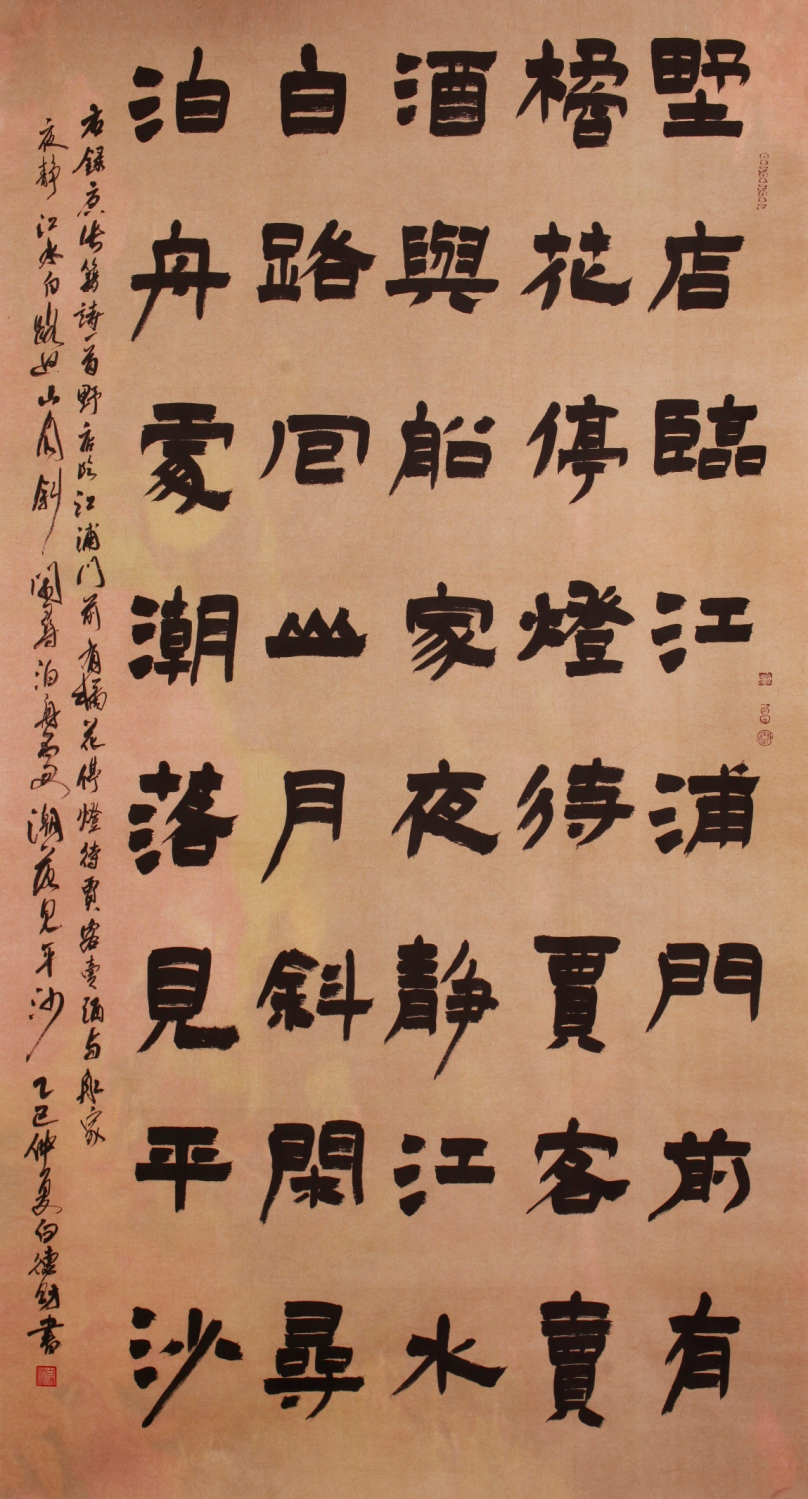 野店臨江浦門前有
橘花停燈待賈客賣
酒與船家夜静江水
白路回山月斜閑尋
泊舟處潮落見平沙
右録唐張籍詩一首野店临江浦门前有橘花停燈待賈客賣酒与船家
夜静江水白路迴山月斜閑尋泊舟處潮落見平沙 乙巳仲夏白德書